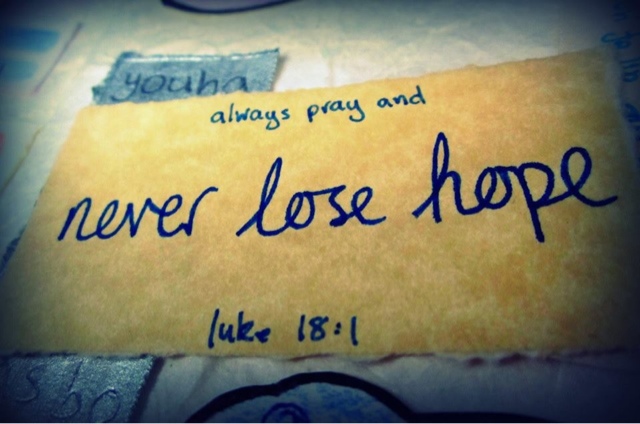 youha
always pray and
never lose hope
luke 18:1